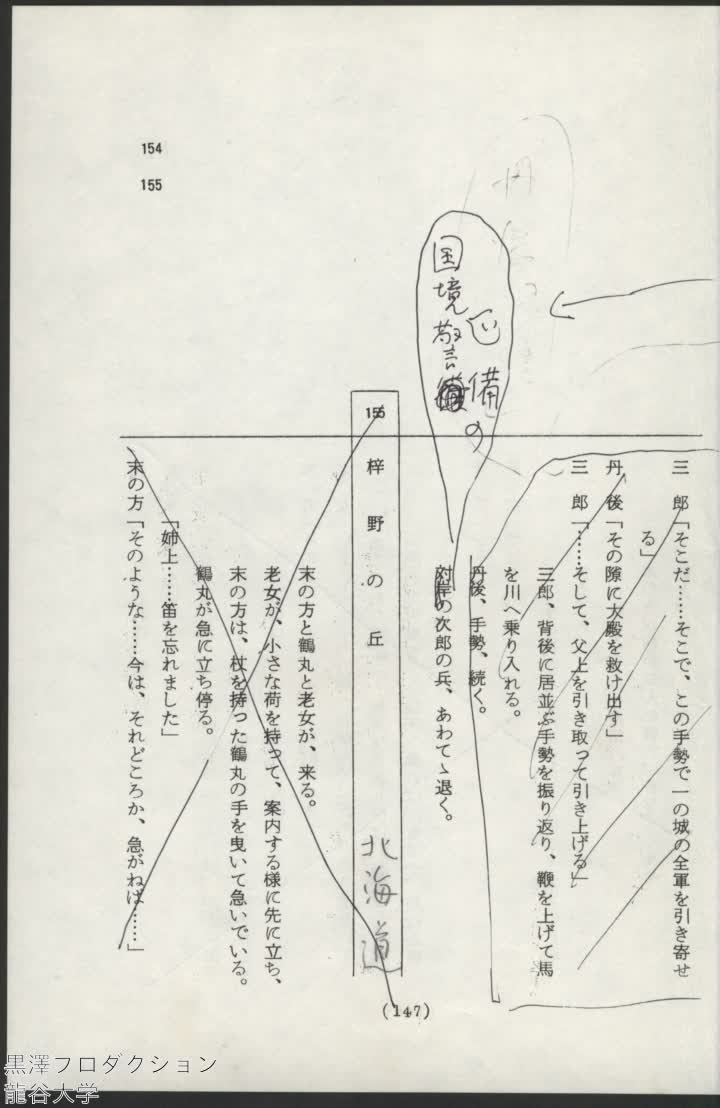 154
155
三郎「そこだ……そこで、この手勢で一の城の全軍を引き寄せ
る」
丹後「その隙に大殿を救け出す」
三郎「……そして、父上を引き取って引き上げる」
三郎、背後に居並ぶ手勢を振り返り、鞭を上げて馬
を川へ乗り入れる。
丹後、手勢、続く。
備の
国境警
対岸の次郎の兵、あわてゝ退く。
155
梓野の丘
北海道
末の方と鶴丸と老女が、来る。
老女が、小さな荷を持って、案内する様に先に立ち、
末の方は、杖を持った鶴丸の手を曳いて急いでいる。
鶴丸が急に立ち停る。
「姉上……笛を忘れました」
末の方「そのような……今は、それどころか、急がねば……」
(147)
黒澤プロダクション
龍谷大学